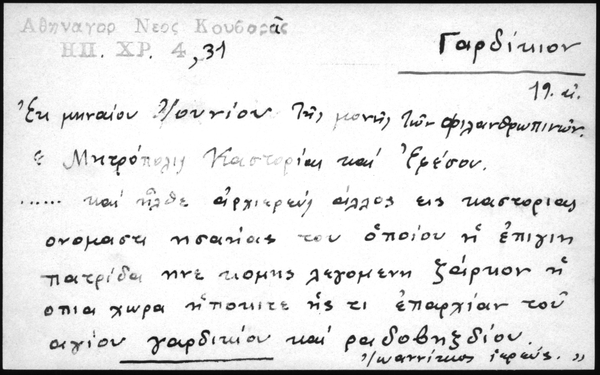 Αθηναγορ Νεος Κουβαρᾶς
ΗΠ. ΧΡ. 4, 31
Γαρδίκιον
19. κ.
Ἐκ μηναίου Ἰουνίου τῆς μονῆς τῶν φιλανθρωπινῶν.
Μητρόπολις Καστορίας καί Ἐρέσου.
...... καί ἦλθε ἀρχιερεύς ἄλλος εις καστοριας
ονομαστι ησαήας του ὁποίου ἡ ἐπιγιη
πατρίδα ηνε κομης λεγομενη ξάρκον ἡ
οπια χωρα ἠποκιτε ἠς τι ἐπαρχίαν τοῦ
αγίου γαρδικίου καί ραδοβηζδίου.
Ἰωαννίκιος ἱερεύς. "